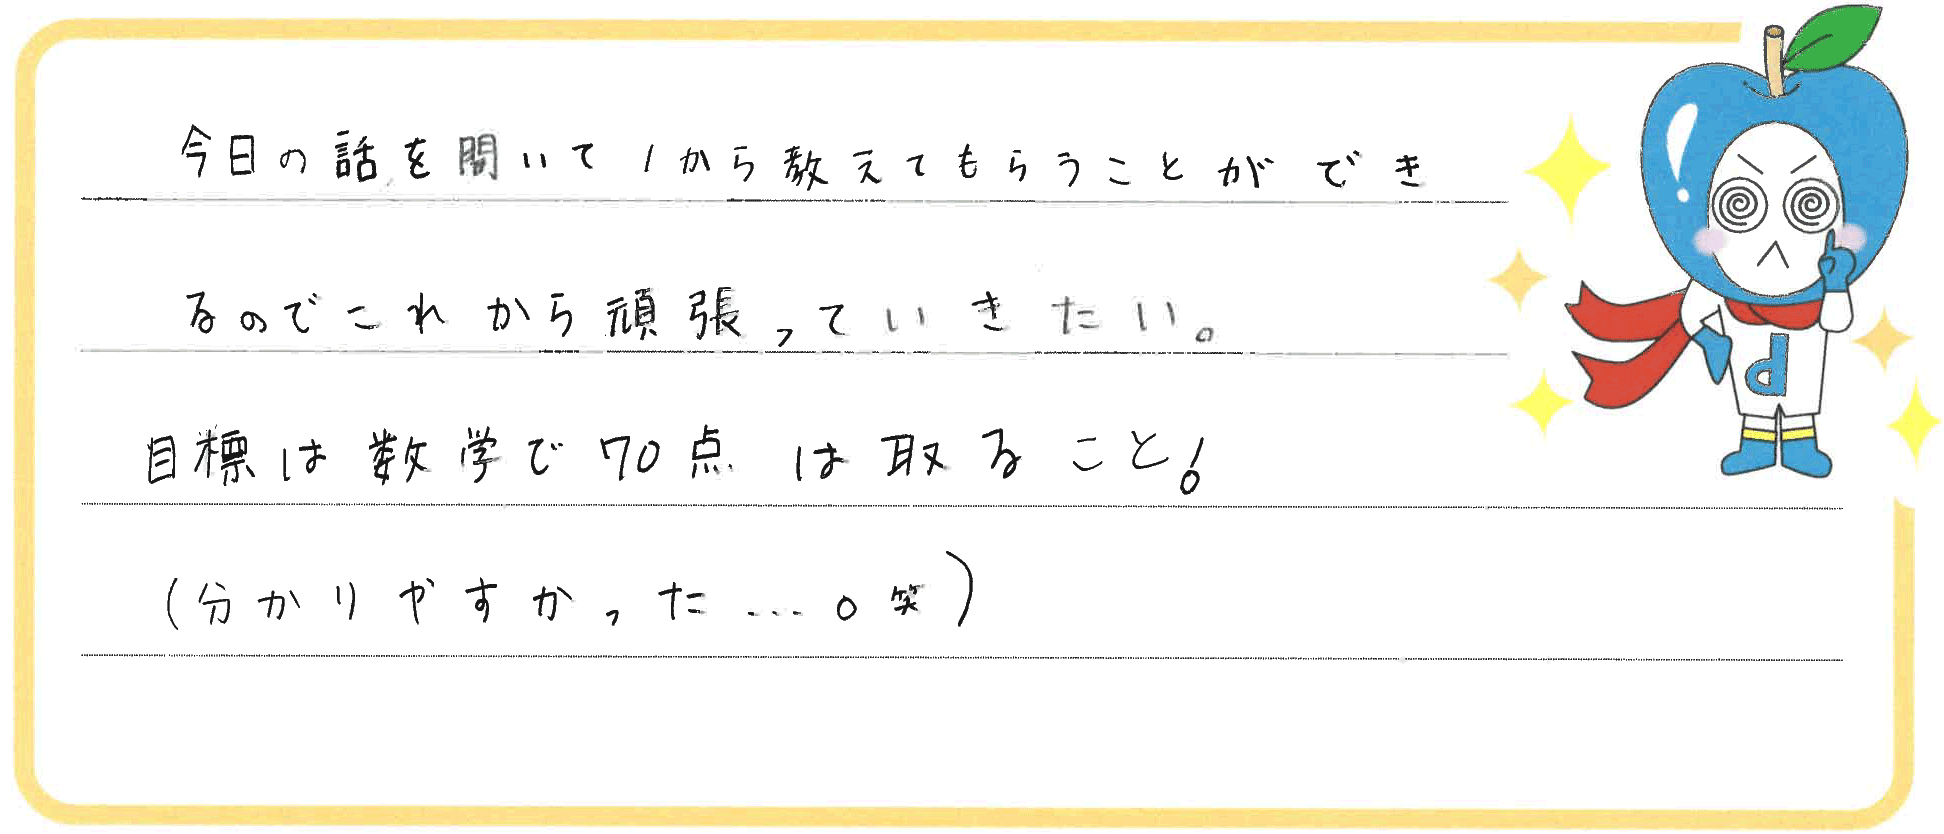 今日の話を聞いて1から教えてもらうことができ
るのでこれから頑張っていきたい。
目標は数学で70点は取ること!
(分かりやすかった…。笑)
d